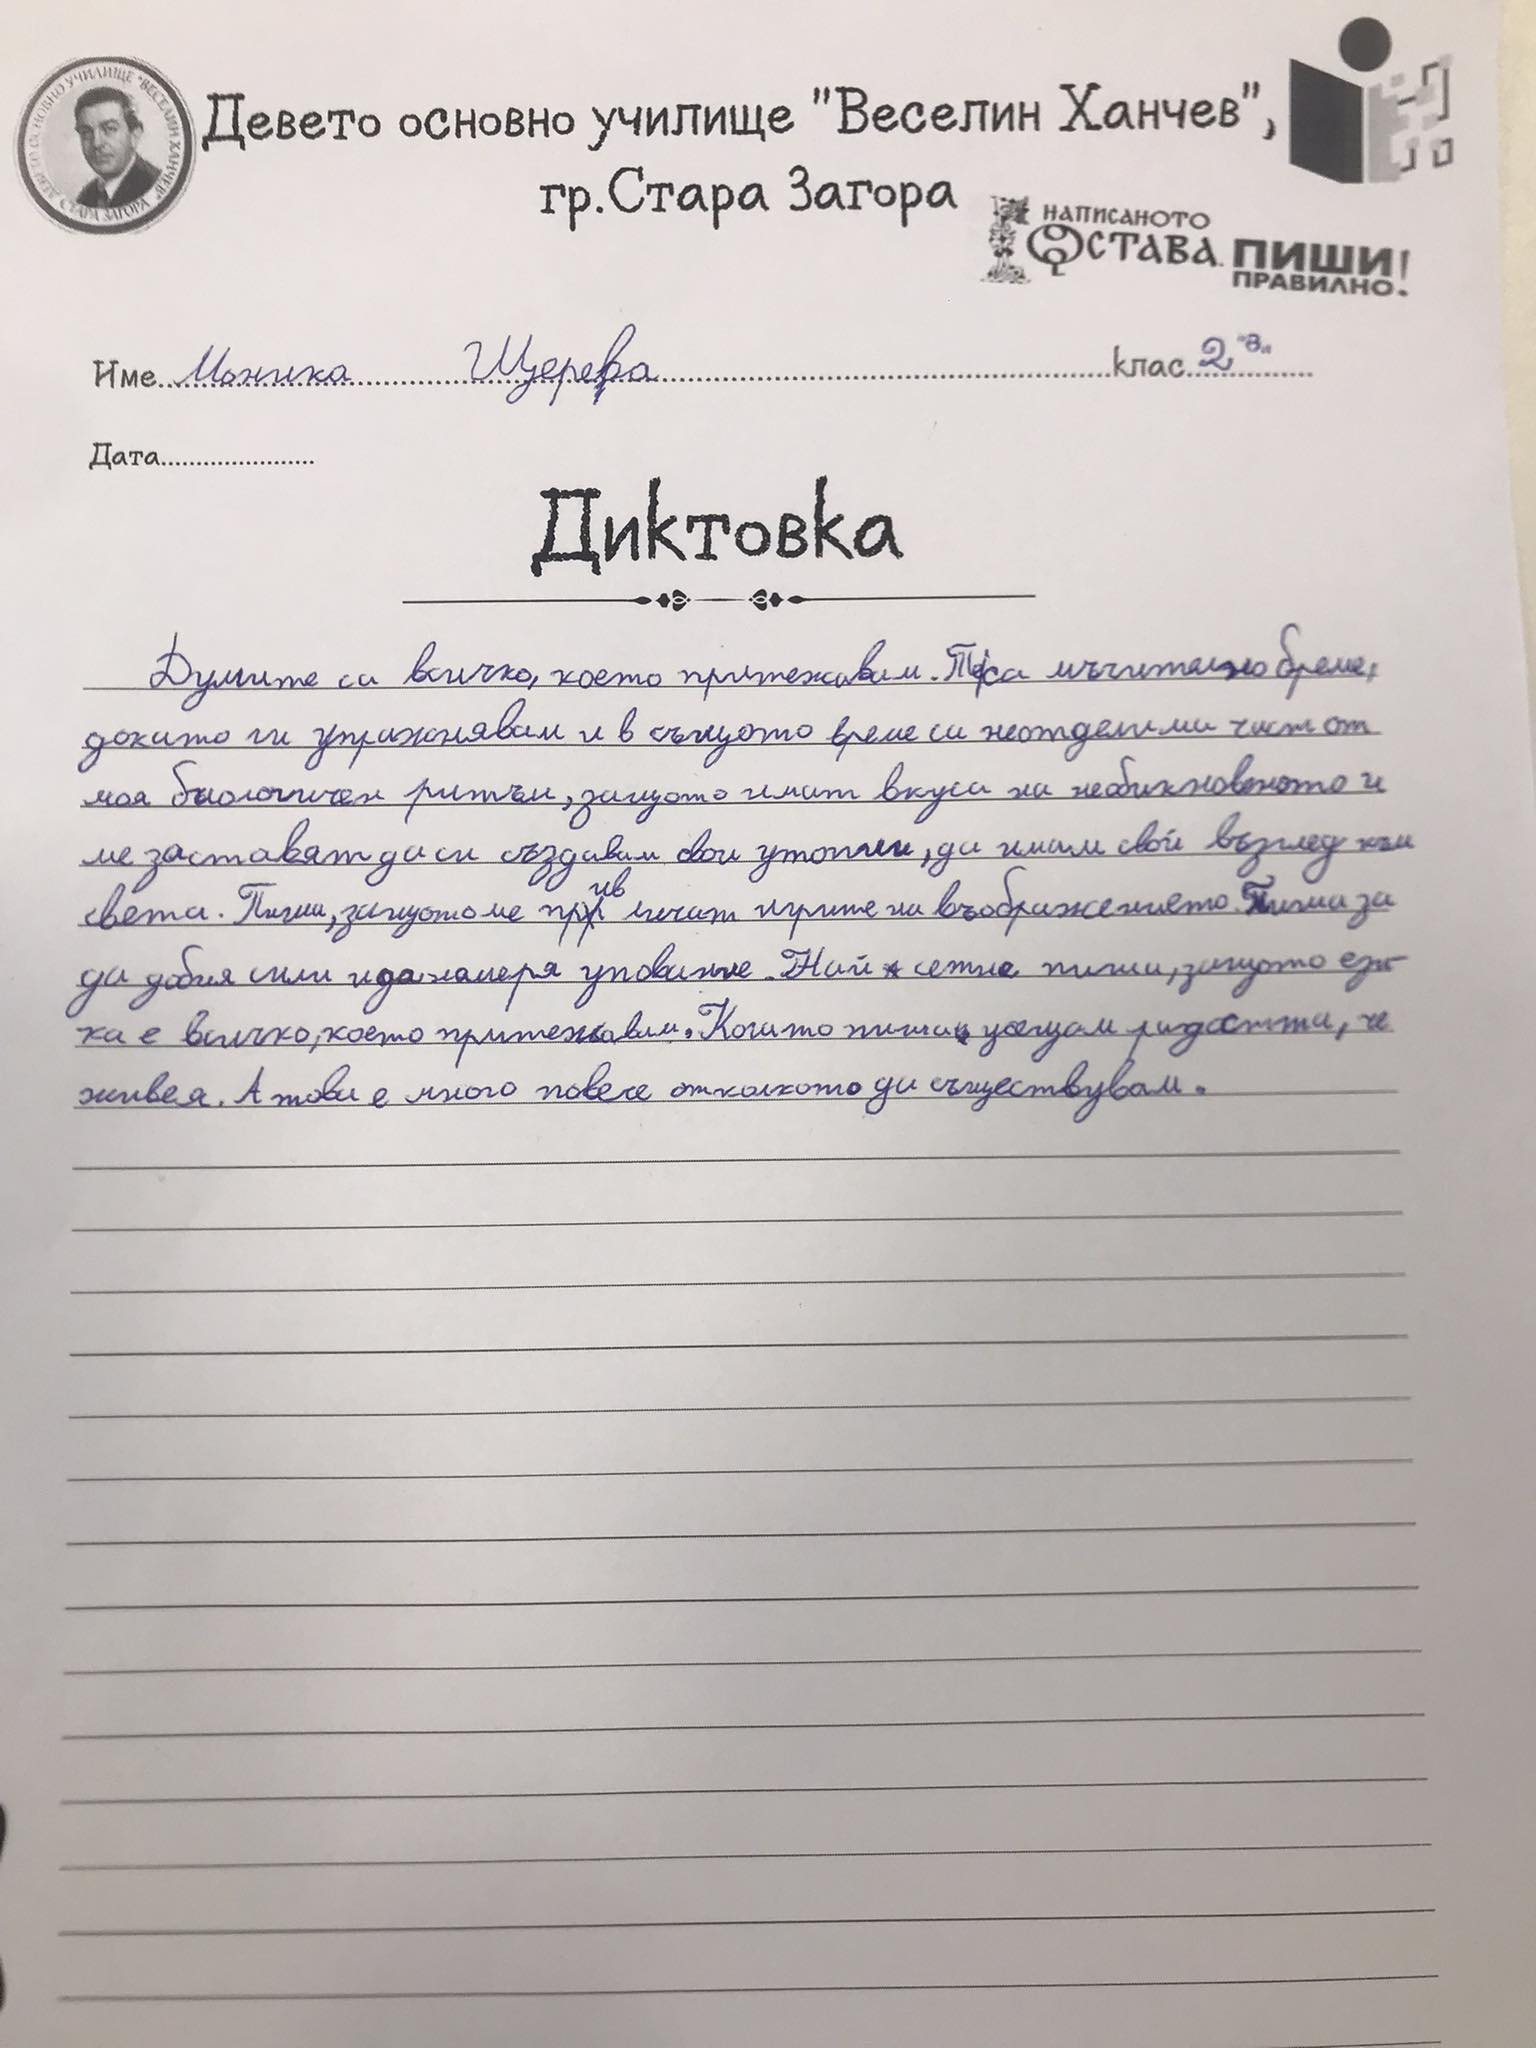 ДЕВЕТО ОСНОВНО УЧИЛИЩЕ "ВЕСЕЛИН ХАНЧЕВ" СТАРА ЗАГОРА
Девето основно училище "Веселин Ханчев",
гр.Стара Загора
НАПИСАНОТО
ОСТАВА. ПИШИ
ПРАВИЛНО!
Име Моника Щерева клас 2 "в"
Дата
Диктовка
Думите са всичко, което притежавам. Те са мъчително бреме,
докато ги упражнявам и в същото време са неотделими част от
моя биологичен ритъм, защото имат вкуса на необикновеното и
ме заставят да си създавам свои утопии, да имам свой възглед към
света. Пиша, защото ме привличат игрите на въображението. Пиша за
да добия сили и да намеря упование. Най сетне пиша, защото ези
ка е всичко, което притежавам. Когато пиша усещам радостта, че
живея. А това е много повече отколкото да съществувам.